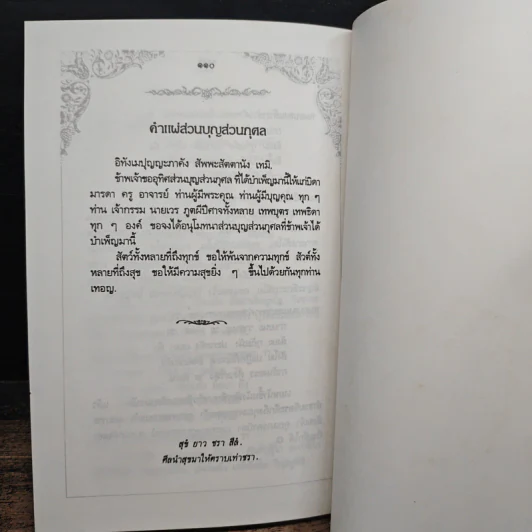 ๑๑๐
คำแผ่ส่วนบุญส่วนกุศล
อิทังเมปุญญะภาคัง สัพพะสัตตานัง เทมิ.
ข้าพเจ้าขออุทิศส่วนบุญส่วนกุศล ที่ได้บำเพ็ญมานี้ให้แก่บิดา
มารดา ครู อาจารย์ ท่านผู้มีพระคุณ ท่านผู้มีบุญคุณ ทุก ๆ
ท่าน เจ้ากรรม นายเวร ภูตผีปีศาจทั้งหลาย เทพบุตร เทพธิดา
ทุก ๆ องค์ ขอจงได้อนุโมทนาส่วนบุญส่วนกุศลที่ข้าพเจ้าได้
บำเพ็ญมานี้
สัตว์ทั้งหลายที่ถึงทุกข์ ขอให้พ้นจากความทุกข์ สัตว์ทั้ง
หลายที่ถึงสุข ขอให้มีความสุขยิ่ง ๆ ขึ้นไปด้วยกันทุกท่าน
เทอญ.
สุขํ ยาว ชรา สีลํ.
ศีลนำสุขมาให้ตราบเท่าชรา.